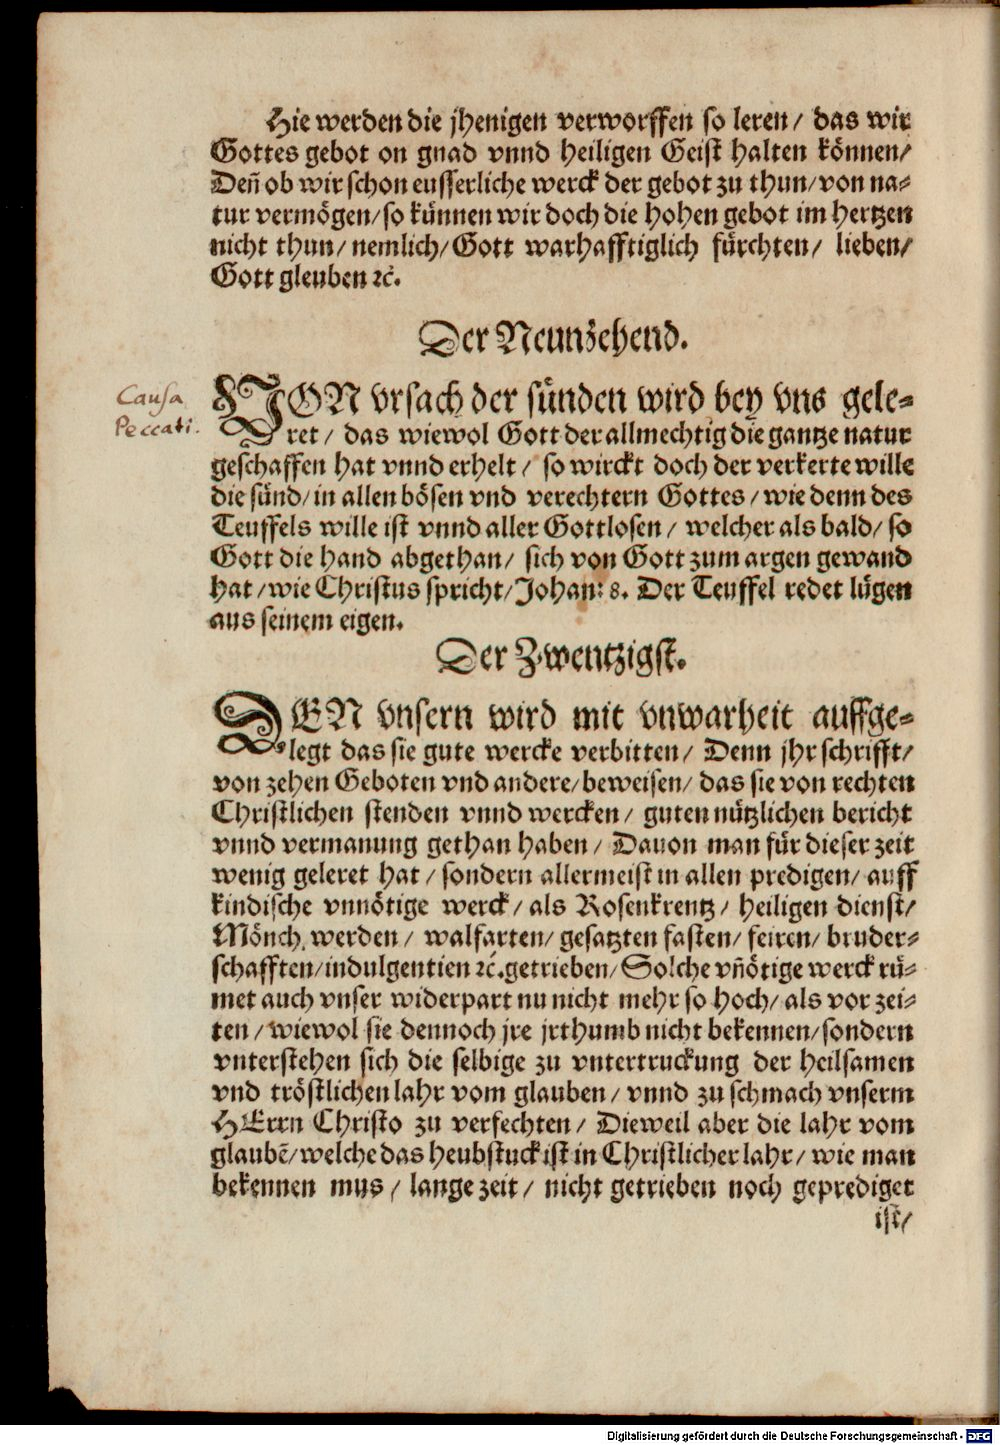 Hie werden die jhenigen verworffen so leren/ das wir
Gottes gebot on gnad vnnd heiligen Geist halten können/
Deñ ob wir schon eusserliche werck der gebot zu thun/von na⸗
tur vermögen/so künnen wir doch die hohen gebot im hertzen
nicht thun/ nemlich/Gott warhafftiglich fürchten/ lieben/
Gott gleuben ꝛc̃.
Der Neunzehend.
Causa
Peccati.
VON vrsach der sünden wird bey vns gele⸗
ret/ das wiewol Gott der allmechtig die gantze natur
geschaffen hat vnnd erhelt/ so wirckt doch der verkerte wille
die sünd/in allen bösen vnd verechtern Gottes/wie denn des
Teuffels wille ist vnnd aller Gottlosen/ welcher als bald/ so
Gott die hand abgethan/ sich von Gott zum argen gewand
hat/wie Christus spricht/Johan: 8. Der Teuffel redet lügen
aus seinem eigen.
Der Zwentzigst.
DEN vnsern wird mit vnwarheit auffge⸗
legt das sie gute wercke verbitten/ Denn jhr schrifft/
von zehen Geboten vnd andere/beweisen/ das sie von rechten
Christlichen stenden vnnd wercken/ guten nützlichen bericht
vnnd vermanung gethan haben/ Dauon man für dieser zeit
wenig geleret hat/sondern allermeist in allen predigen/ auff
kindische vnnötige werck/ als Rosenkrentz/ heiligen dienst/
Mönch werden/ walfarten/ gesatzten fasten/ feiren/ bruder⸗
schafften/indulgentien ꝛc̃.getrieben/Solche vñötige werck rü⸗
met auch vnser widerpart nu nicht mehr so hoch/ als vor zei⸗
ten/wiewol sie dennoch jre jrthumb nicht bekennen/sondern
vnterstehen sich die selbige zu vntertruckung der heilsamen
vnd tröstlichen lahr vom glauben/ vnnd zu schmach vnserm
HErrn Christo zu verfechten/ Dieweil aber die lahr vom
glaubẽ/welche das heubstuck ist in Christlicher lahr/ wie man
bekennen mus/ lange zeit/ nicht getrieben noch geprediget
ist/
Digitalisierung gefördert durch die Deutsche Forschungsgemeinschaft - DFG